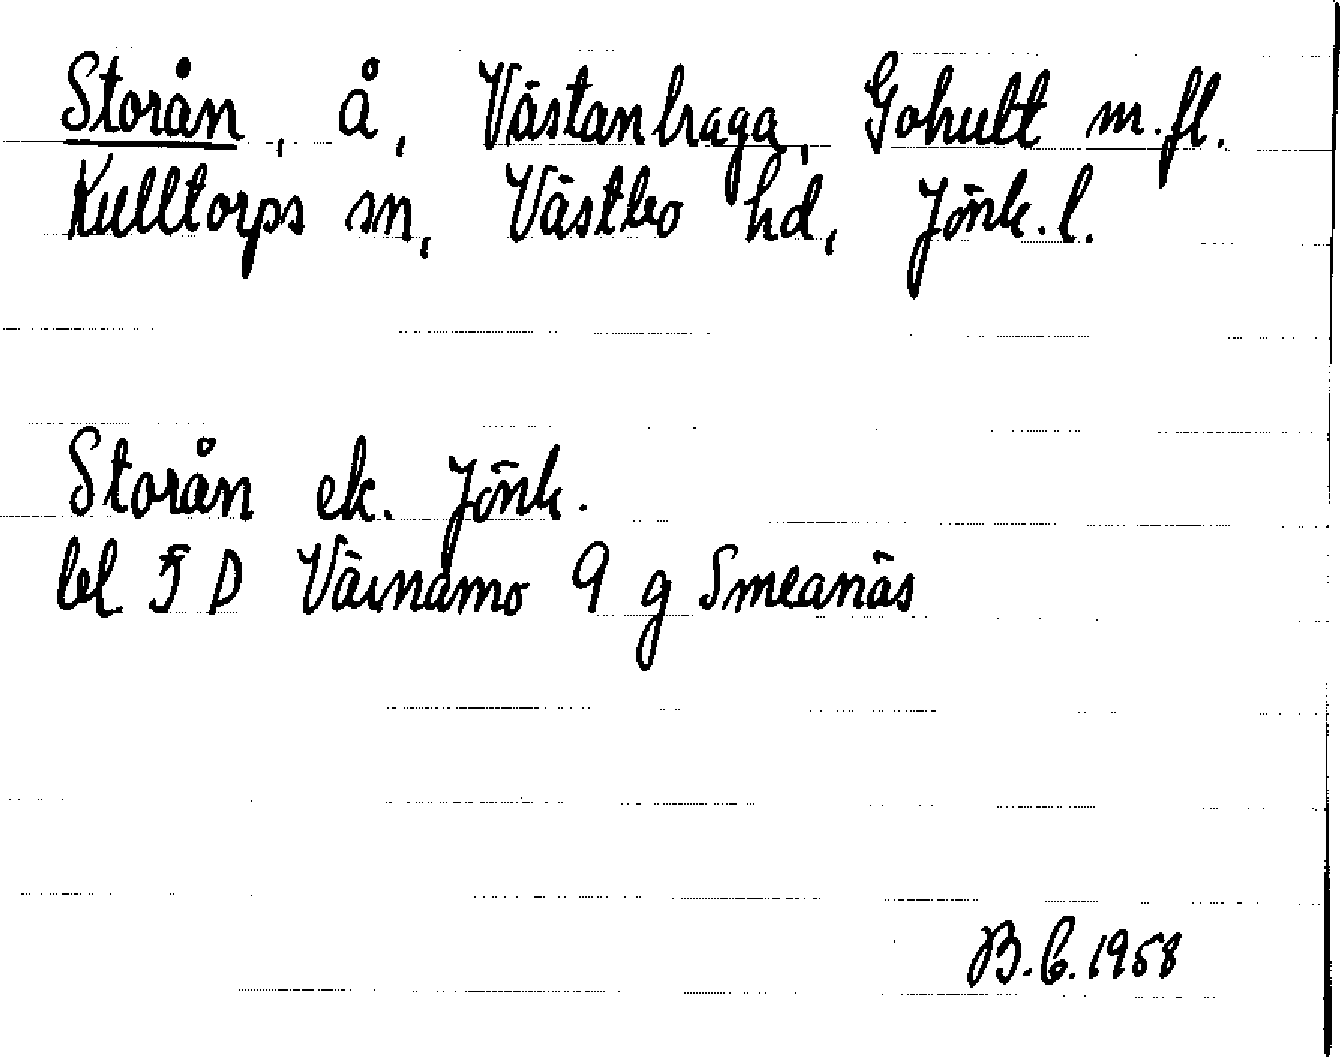 Storån, å, Västanbraga, Gohult m.fl.
Kulltorps sn, Västbo hd, Jönk.l.
Storån ek. Jönk.
bl 5 D Värnamo 9 g Smeanäs
B.C. 1958